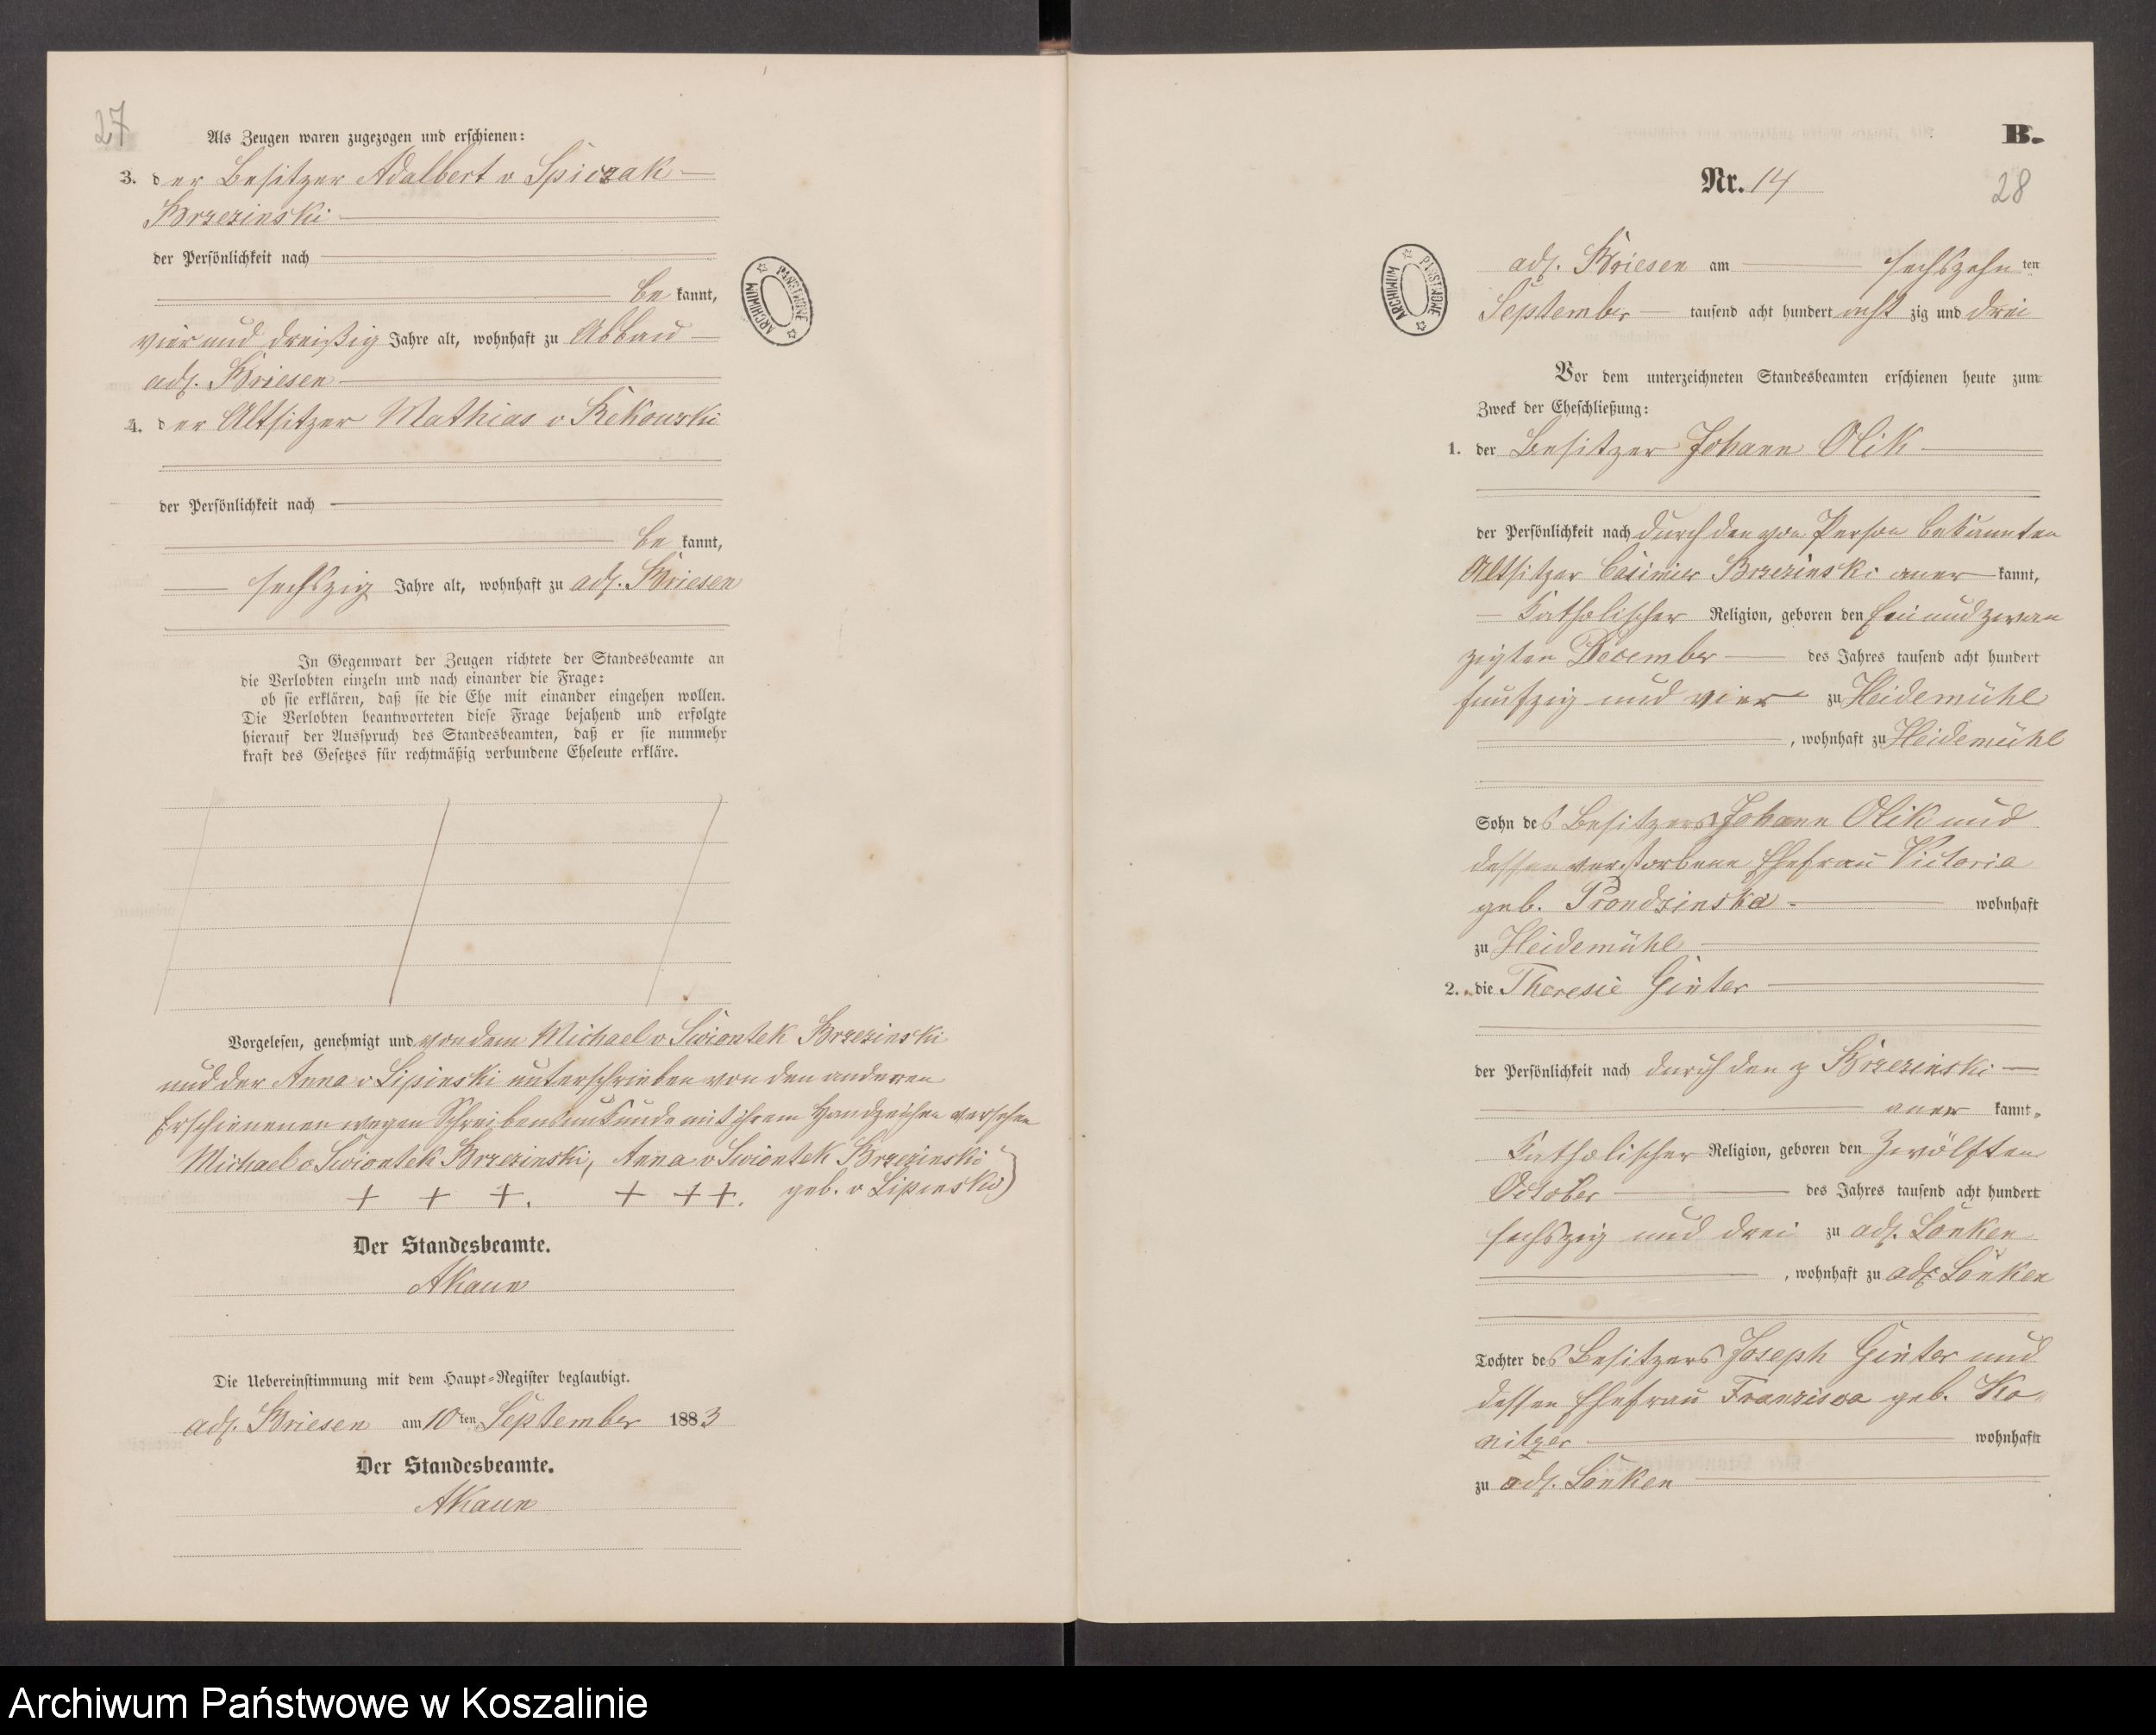 27
Als Zeugen waren zugezogen und erschienen:
3. der Besitzer Adalbert v Spiczak
Brzezinski
der Persönlichkeit nach
be kannt,
vier und dreißig Jahre alt, wohnhaft zu Abbau
adl. Briesen
4. der Altsitzer Mathias v Rekowski
der Persönlichkeit nach
be kannt,
sechszig Jahre alt, wohnhaft zu adl. Briesen
In Gegenwart der Zeugen richtete der Standesbeamte an
die Verlobten einzeln und nach einander die Frage:
ob sie erklären, daß sie die Ehe mit einander eingehen wollen.
Die Verlobten beantworteten diese Frage bejahend und erfolgte
hierauf der Ausspruch des Standesbeamten, daß er sie nunmehr
kraft des Gesetzes für rechtmäßig verbundene Eheleute erkläre.
Vorgelesen, genehmigt und von dem Michael v Swiontek Brzezinski
und der Anna v Lipinski unterschrieben von den anderen
Erschienenen wegen Schreibensunkunde mit ihrem Handzeichen versehen
Michael v Swiontek Brzezinski, Anna v Swiontek Brzezinski
+ + +. + + +. geb. v Lipinski)
Der Standesbeamte.
AKaun
Die Uebereinstimmung mit dem Haupt-Register beglaubigt.
adl. Briesen am 10 ten September 1883
Der Standesbeamte.
AKaun
ARCHIWUM PAŃSTWOWE
B.
Nr. 14
28
ARCHIWUM PAŃSTWOWE
adl. Briesen am sechszehn ten
September tausend acht hundert acht zig und drei
Vor dem unterzeichneten Standesbeamten erschienen heute zum
Zweck der Eheschließung:
1. der Besitzer Johann Olik
der Persönlichkeit nach durch den von Person bekannten
Altsitzer Casimier Brzezinski aner kannt,
Katholischer Religion, geboren den Ein und zwan
zigten December des Jahres tausend acht hundert
funfzig und vier zu Heidemühl
, wohnhaft zu Heidemühl
Sohn des Besitzers Johann Olik und
dessen verstorbene Ehefrau Victoria
geb. Prondzinska wohnhaft
zu Heidemühl
2. die Theresie Ginter
der Persönlichkeit nach durch den p Brzezinski
aner kannt,
Katholischer Religion, geboren den Zwölften
October des Jahres tausend acht hundert
sechszig und drei zu adl. Lonken
, wohnhaft zu adl. Lonken
Tochter des Besitzers Joseph Ginter und
dessen Ehefrau Franzisca geb. Ko
nitzer wohnhaft
zu adl. Lonken
Archiwum Państwowe w Koszalinie